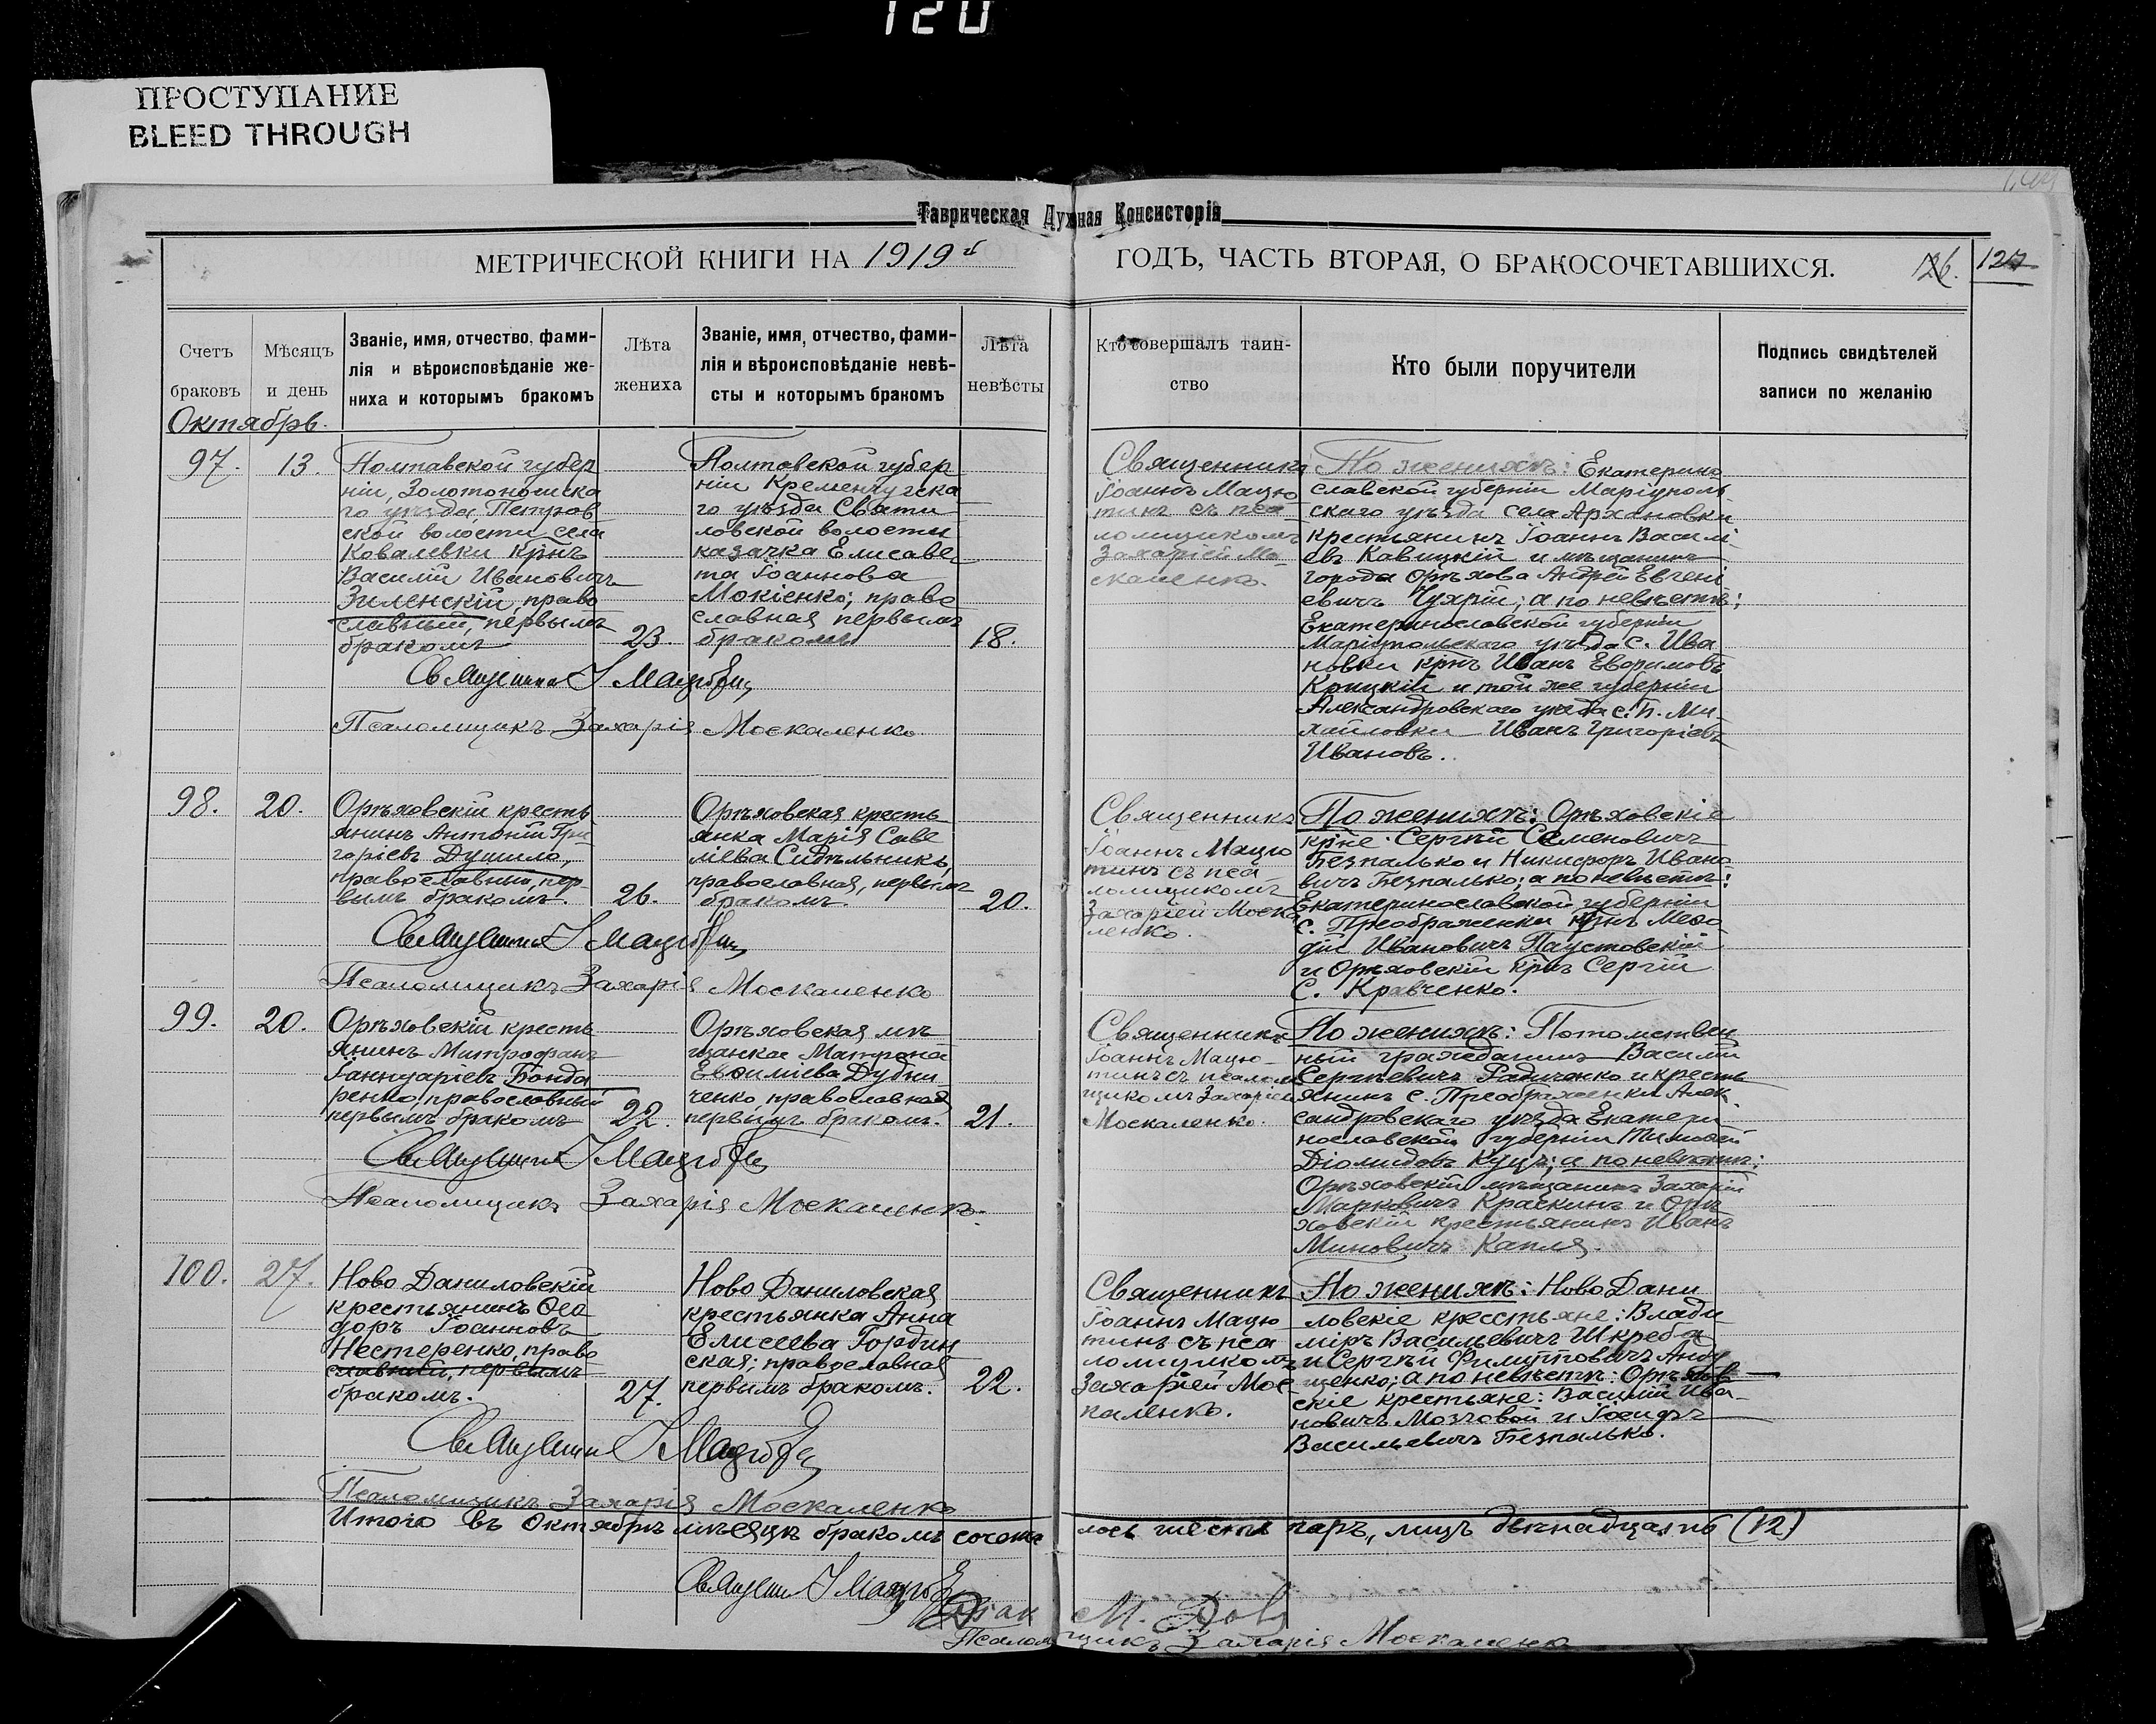 120
ПРОСТУПАНИЕ
BLEED THROUGH
Таврическая Духная Консисторія
МЕТРИЧЕСКОЙ КНИГИ НА 1919 й ГОДЪ, ЧАСТЬ ВТОРАЯ, О БРАКОСОЧЕТАВШИХСЯ.
126.
Счетъ браковъ
Мѣсяцъ и день
Званіе, имя, отчество, фами-
лія и вѣроисповѣданіе же-
ниха и которымъ бракомъ
Лѣта жениха
Званіе, имя, отчество, фами-
лія и вѣроисповѣданіе невѣ-
сты и которымъ бракомъ
Лѣта невѣсты
Кто совершалъ таин-
ство
Кто были поручители
Подпись свидѣтелей
записи по желанію
Октябрь.
97.
13.
Полтавской губер
ніи, Золотоношска
го уѣзда, Петров
ской волости села
Ковалевки крнъ
Василій Ивановичъ
Зиленскій, право
славный, первымъ
бракомъ
23.
Полтовской губер
ніи Кременчугска
го уѣзда Свати
ловской волости
казачка Елисаве
та Іоаннова
Мокіенко; право
славная первымъ
бракомъ
18.
Священникъ
Іоаннъ Мацю
тинъ съ пса
ломщикомъ
Захаріей Мо
скаленко.
По женихѣ: Екатерино
славской губерніи Маріуполь
скаго уѣзда села Архановки
крестьянинъ Іоаннъ Василі
евъ Кавицкій и мѣщанинъ
города Орѣхова Андрей Евгені
евичъ Чухрій; а по невѣстѣ:
Екатеринославской губерніи
Маріупольскаго уѣзда с. Ива
новки крнъ Иванъ Евфимовъ
Крицкій и той же губерніи
Александровскаго уѣзда с. Б. Ми-
хайловки Иванъ Григоріевъ
Ивановъ.
Священникъ І Мацютин
Псаломщикъ Захарія Москаленко
98.
20.
Орѣховскій кресть
янинъ Антоній Гри
горіевъ Душило,
православный, пер-
вымъ бракомъ.
26.
Орѣховская кресть
янка Марія Саве
ліева Сидѣльникъ,
православная, первымъ
бракомъ.
20.
Священникъ
Іоаннъ Мацю
тинъ съ пса
ломщикомъ
Захаріей Моска
ленко.
По женихѣ: Орѣховскіе
крне: Сергѣй Семеновичъ
Безпалько и Никифоръ Ивано
вичъ Безпалько; а по невѣстѣ:
Екатеринославской губерніи
с. Преображенки крнъ Меѳо
дій Ивановичъ Паустовскій
и Орѣховскій крнъ Сергій
С. Кравченко.
Священникъ І Мацютин
Псаломщикъ Захарія Москаленко
99.
20.
Орѣховскій кресть
янинъ Митрофанъ
Іаннуаріевъ Бонда
ренко, православный
первымъ бракомъ
22.
Орѣховская мѣ
щанка Матрона
Евѳиміева Дубни
ченко, православная
первымъ бракомъ.
21.
Священникъ
Іоаннъ Мацю-
тинъ съ псалом
щикомъ Захаріей
Москаленко.
По женихѣ: Потомствен
ный гражданинъ Василій
Сергѣевичъ Радиченко и кресть
янинъ с. Преображенки Алек-
сандровскаго уѣзда Екатери
нославской губерніи Тимоѳей
Діомидовъ Куцъ; а по невѣстѣ:
Орѣховскій мѣщанинъ Захарій
Марковичъ Краскинъ и Орѣ
ховскій крестьянинъ Иванъ
Миновичъ Капля.
Священникъ І Мацютин
Псаломщикъ Захарія Москаленко.
100.
27.
Ново Даниловскій
крестьянинъ Ѳео
доръ Іоанновъ
Нестеренко, право
славный, первымъ
бракомъ.
27.
Ново Даниловская
крестьянка Анна
Елисеева Гордин
ская; православная
первымъ бракомъ.
22.
Священникъ
Іоаннъ Мацю
тинъ съ пса
ломщикомъ
Захаріей Мос-
каленко.
По женихѣ: Ново Дани
ловскіе крестьяне: Влади
міръ Васильевичъ Шкреба
и Сергѣй Филипповичъ Анд
щенко; а по невѣстѣ: Орѣхов
скіе крестьяне: Василій Ива-
новичъ Мозговой и Іосифъ
Васильевичъ Безпалько.
Священникъ І Мацютин
Псаломщикъ Захарія Москаленко
Итого въ Октябрѣ мѣсяцѣ бракомъ сочета лось шесть паръ, лицъ двѣнадцать (12)
Священ І Мацютин
Псаломщикъ Захарія Москаленко